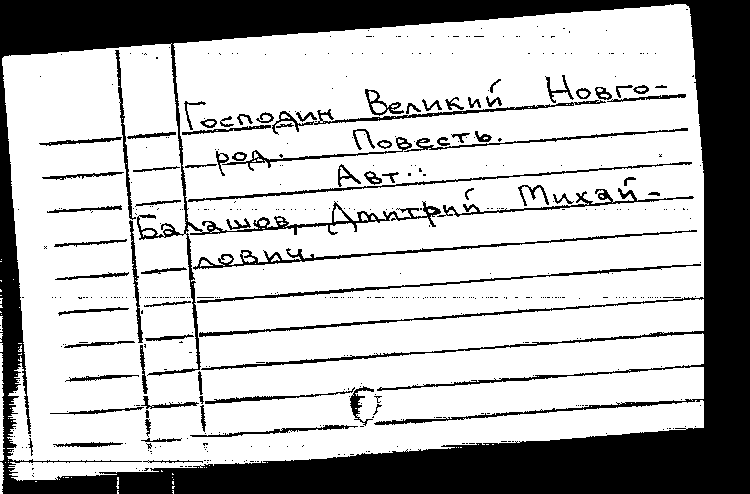 Господин Великий Новго-
род. Повесть.
Авт.:
Балашов, Дмитрий Михай-
лович.